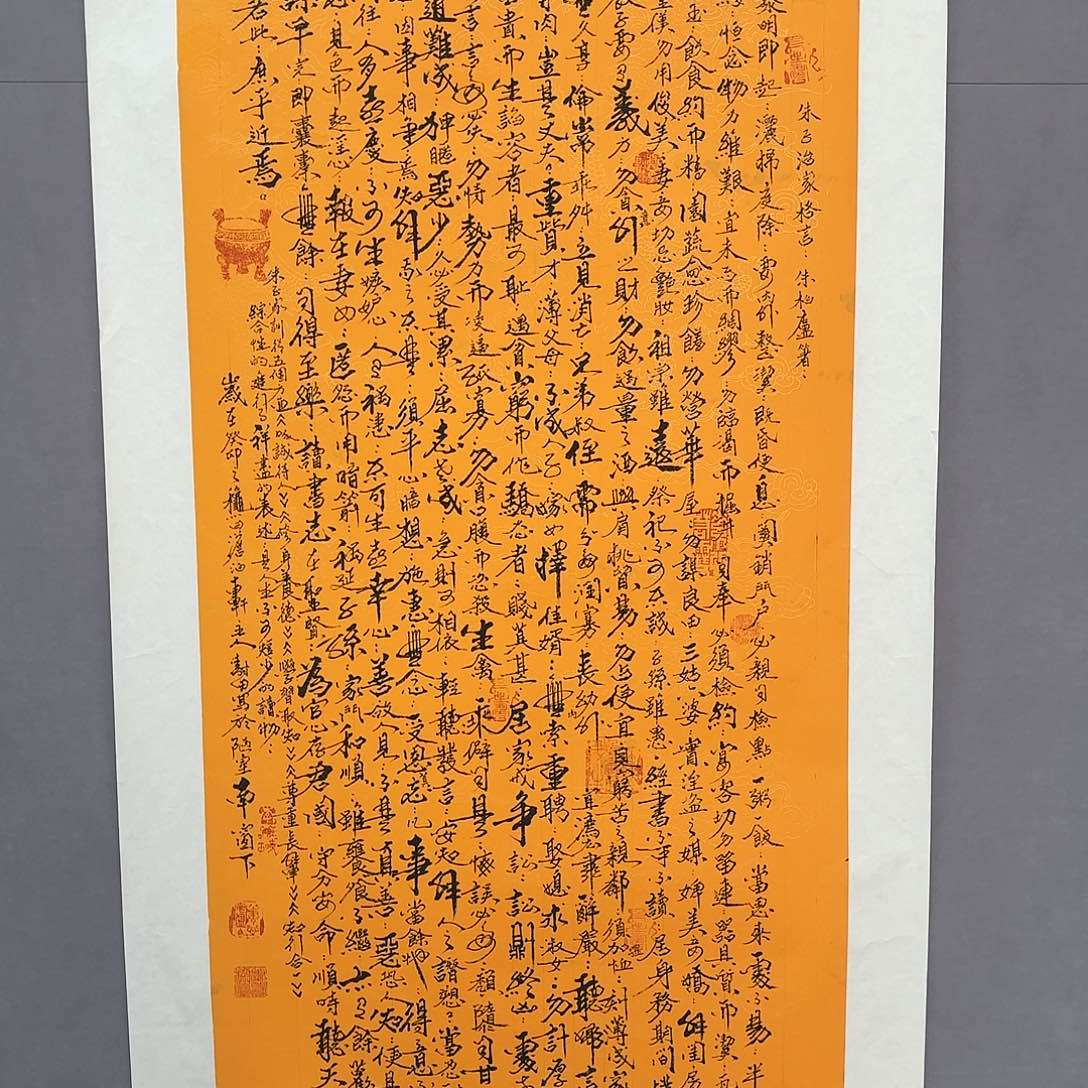 朱子治家格言：朱柏廬著：
黎明即起：灑掃庭除：要內外整潔：既昏便息：關鎖門戶：必親自檢點：一粥一飯：當思來處不易：半
恒念物力維艱：宜未雨而綢繆：勿臨渴而掘井：自奉必須儉約：宴客切勿留連：器具質而潔：瓦
玉：飲食約而精：園蔬愈珍饈：勿營華屋：勿謀良田：三姑六婆：實淫盜之媒：婢美妾嬌：非閨房
童僕勿用俊美：妻妾切忌艷妝：祖宗雖遠：祭祀不可不誠：子孫雖愚：經書不可不讀：居身務期簡樸
教子要有義方：勿貪外之財：勿飲過量之酒：與肩挑貿易：勿占便宜：見窮苦之親鄰：須加恤：刻薄成家
無久享：倫常乖舛：立見消亡：兄弟叔侄：需分多潤寡：長幼內外：宜肅辭嚴：聽婦言
肉：豈是丈夫：重貲才：薄父母：不成人子：嫁女擇佳婿：無索重聘：娶媳求淑女：勿計厚
富貴而生諂容者：最可恥：遇貧窮而作驕態者：賤莫甚：居家戒爭訟：訟則終凶：處
多言：言多必失：勿恃勢力而凌逼孤寡：勿貪口腹而恣殺生禽：乖僻自是：悔誤必多：頹隨自甘
道難成：狎暱惡少：久必受其累：屈志老成：急則可相依：輕聽發言：安知非人之譖愬：當忍
因事相爭：焉知非我之不是：須平心暗想：施惠無念：受恩莫忘：凡事當餘地：得意
往：人有喜慶：不可生嫉妒心：人有禍患：不可生喜幸心：善欲人見：不是真善：惡恐人知：便是
惡：見色而起淫心：報在妻女：匿怨而用暗箭：禍延子孫：家門和順：雖饔飧不繼：亦有餘歡
課早完：即囊橐無餘：自得至樂：讀書志在聖賢：為官心存君國：守分安命：順時聽天
若此：庶乎近焉。
朱子家訓將五個方面《勤誠待人》《修身養德》《學習求知》《尊重長輩》《知行合一》
綜合性的進行了祥盡的表述：是人生不可短少的讀物：
歲在癸卯之秋西軒主人寫於陋室南窗下